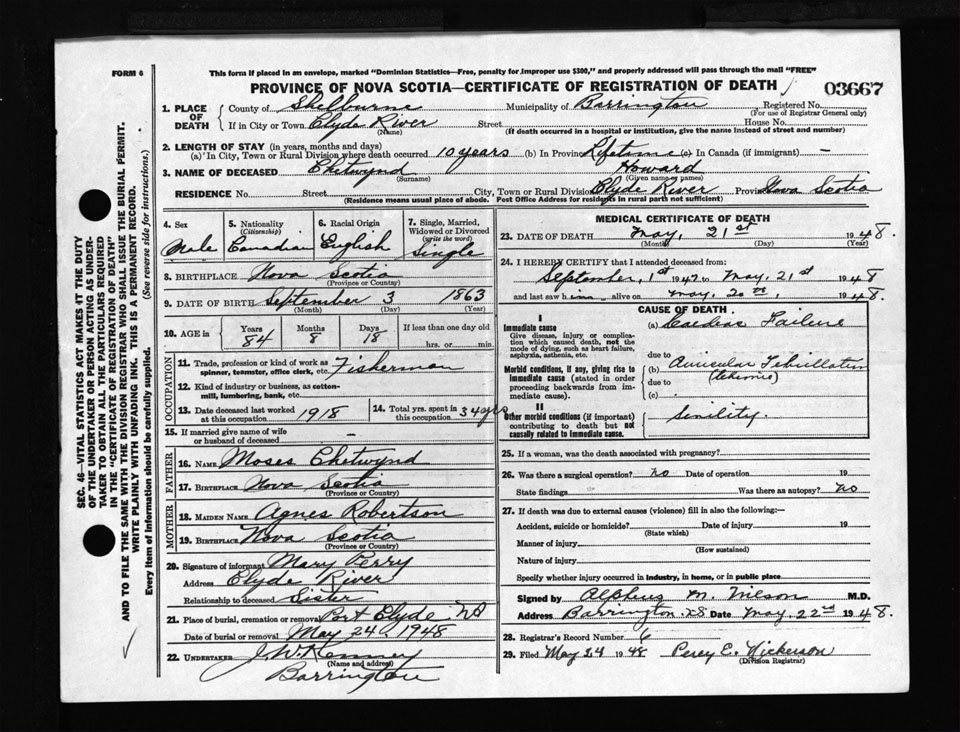 FORM 6
This form if placed in an envelope, marked "Dominion Statistics—Free, penalty for improper use $300," and properly addressed will pass through the mail "FREE"
PROVINCE OF NOVA SCOTIA—CERTIFICATE OF REGISTRATION OF DEATH
03667
1. PLACE OF DEATH
County of Shelburne Municipality of Barrington Registered No.
(For use of Registrar General only)
If in City or Town Clyde River Street House No.
(Name) (If death occurred in a hospital or institution, give the name instead of street and number)
2. LENGTH OF STAY (in years, months and days)
(a) In City, Town or Rural Division where death occurred 10 years (b) In Province Lifetime (c) In Canada (if immigrant) —
3. NAME OF DECEASED Chetwynd Howard
(Surname) (Given name or names)
RESIDENCE No. Street City, Town or Rural Division Clyde River Province Nova Scotia
(Residence means usual place of abode. Post Office Address for residents in rural parts not sufficient)
4. Sex
Male
5. Nationality
(Citizenship)
Canadian
6. Racial Origin
English
7. Single, Married,
Widowed or Divorced
(write the word)
Single
8. BIRTHPLACE Nova Scotia
(Province or Country)
9. DATE OF BIRTH September 3 1863
(Month) (Day) (Year)
10. AGE in
Years 84
Months 8
Days 18
If less than one day old
hrs. or min.
OCCUPATION
11. Trade, profession or kind of work as spinner, teamster, office clerk, etc. Fisherman
12. Kind of industry or business, as cotton-mill, lumbering, bank, etc.
13. Date deceased last worked at this occupation 1918
14. Total yrs. spent in this occupation 34 yrs
15. If married give name of wife or husband of deceased —
FATHER
16. NAME Moses Chetwynd
17. BIRTHPLACE Nova Scotia
(Province or Country)
MOTHER
18. MAIDEN NAME Agnes Robertson
19. BIRTHPLACE Nova Scotia
(Province or Country)
20. Signature of informant Mary Perry
Address Clyde River
Relationship to deceased Sister
21. Place of burial, cremation or removal Port Clyde NS
Date of burial or removal May 24, 1948
22. UNDERTAKER J. W. Kenney
(Name and address)
Barrington
MEDICAL CERTIFICATE OF DEATH
23. DATE OF DEATH May, 21st 1948.
(Month) (Day) (Year)
24. I HEREBY CERTIFY that I attended deceased from:
September, 1st 1947 to May, 21st 1948
and last saw him alive on May, 20th, 1948.
CAUSE OF DEATH
I
Immediate cause
Give disease, injury or complication which caused death, not the mode of dying, such as heart failure, asphyxia, asthenia, etc.
(a) Cardiac Failure
due to
Morbid conditions, if any, giving rise to immediate cause (stated in order proceeding backwards from immediate cause).
(b) Auricular Fibrillation
(chronic)
due to
(c)
II
Other morbid conditions (if important) contributing to death but not causally related to immediate cause.
Senility.
25. If a woman, was the death associated with pregnancy?
26. Was there a surgical operation? no Date of operation 19
State findings Was there an autopsy? no
27. If death was due to external causes (violence) fill in also the following:—
Accident, suicide or homicide? Date of injury 19
(State which)
Manner of injury
(How sustained)
Nature of injury
Specify whether injury occurred in industry, in home, or in public place
Signed by Alpheus M. Wilson M.D.
Address Barrington. N.S. Date May, 22nd 1948.
28. Registrar's Record Number 6
29. Filed May 24 1948 Percy E. Nickerson
(Division Registrar)
SEC. 46—VITAL STATISTICS ACT MAKES IT THE DUTY
OF THE UNDERTAKER OR PERSON ACTING AS UNDERTAKER
TO OBTAIN ALL THE PARTICULARS REQUIRED
IN THE "CERTIFICATE OF REGISTRATION OF DEATH"
AND TO FILE THE SAME WITH THE DIVISION REGISTRAR WHO SHALL ISSUE THE BURIAL PERMIT.
WRITE PLAINLY WITH UNFADING INK. THIS IS A PERMANENT RECORD.
Every item of information should be carefully supplied. (See reverse side for instructions.)